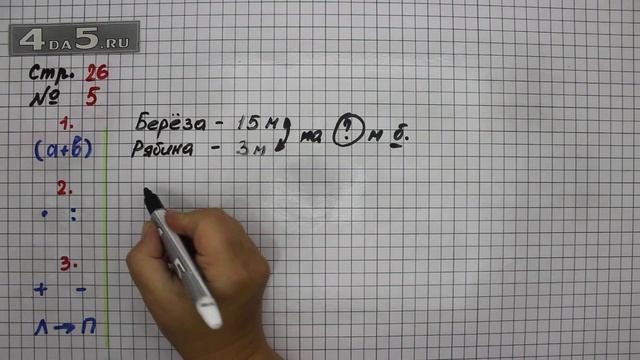 4DA5.RU
Стр. 26
№ 5
1.
(а+в)
2.
• :
3.
+ -
Л → П
Берёза - 15 м
Рябина - 3 м
на ? м б.